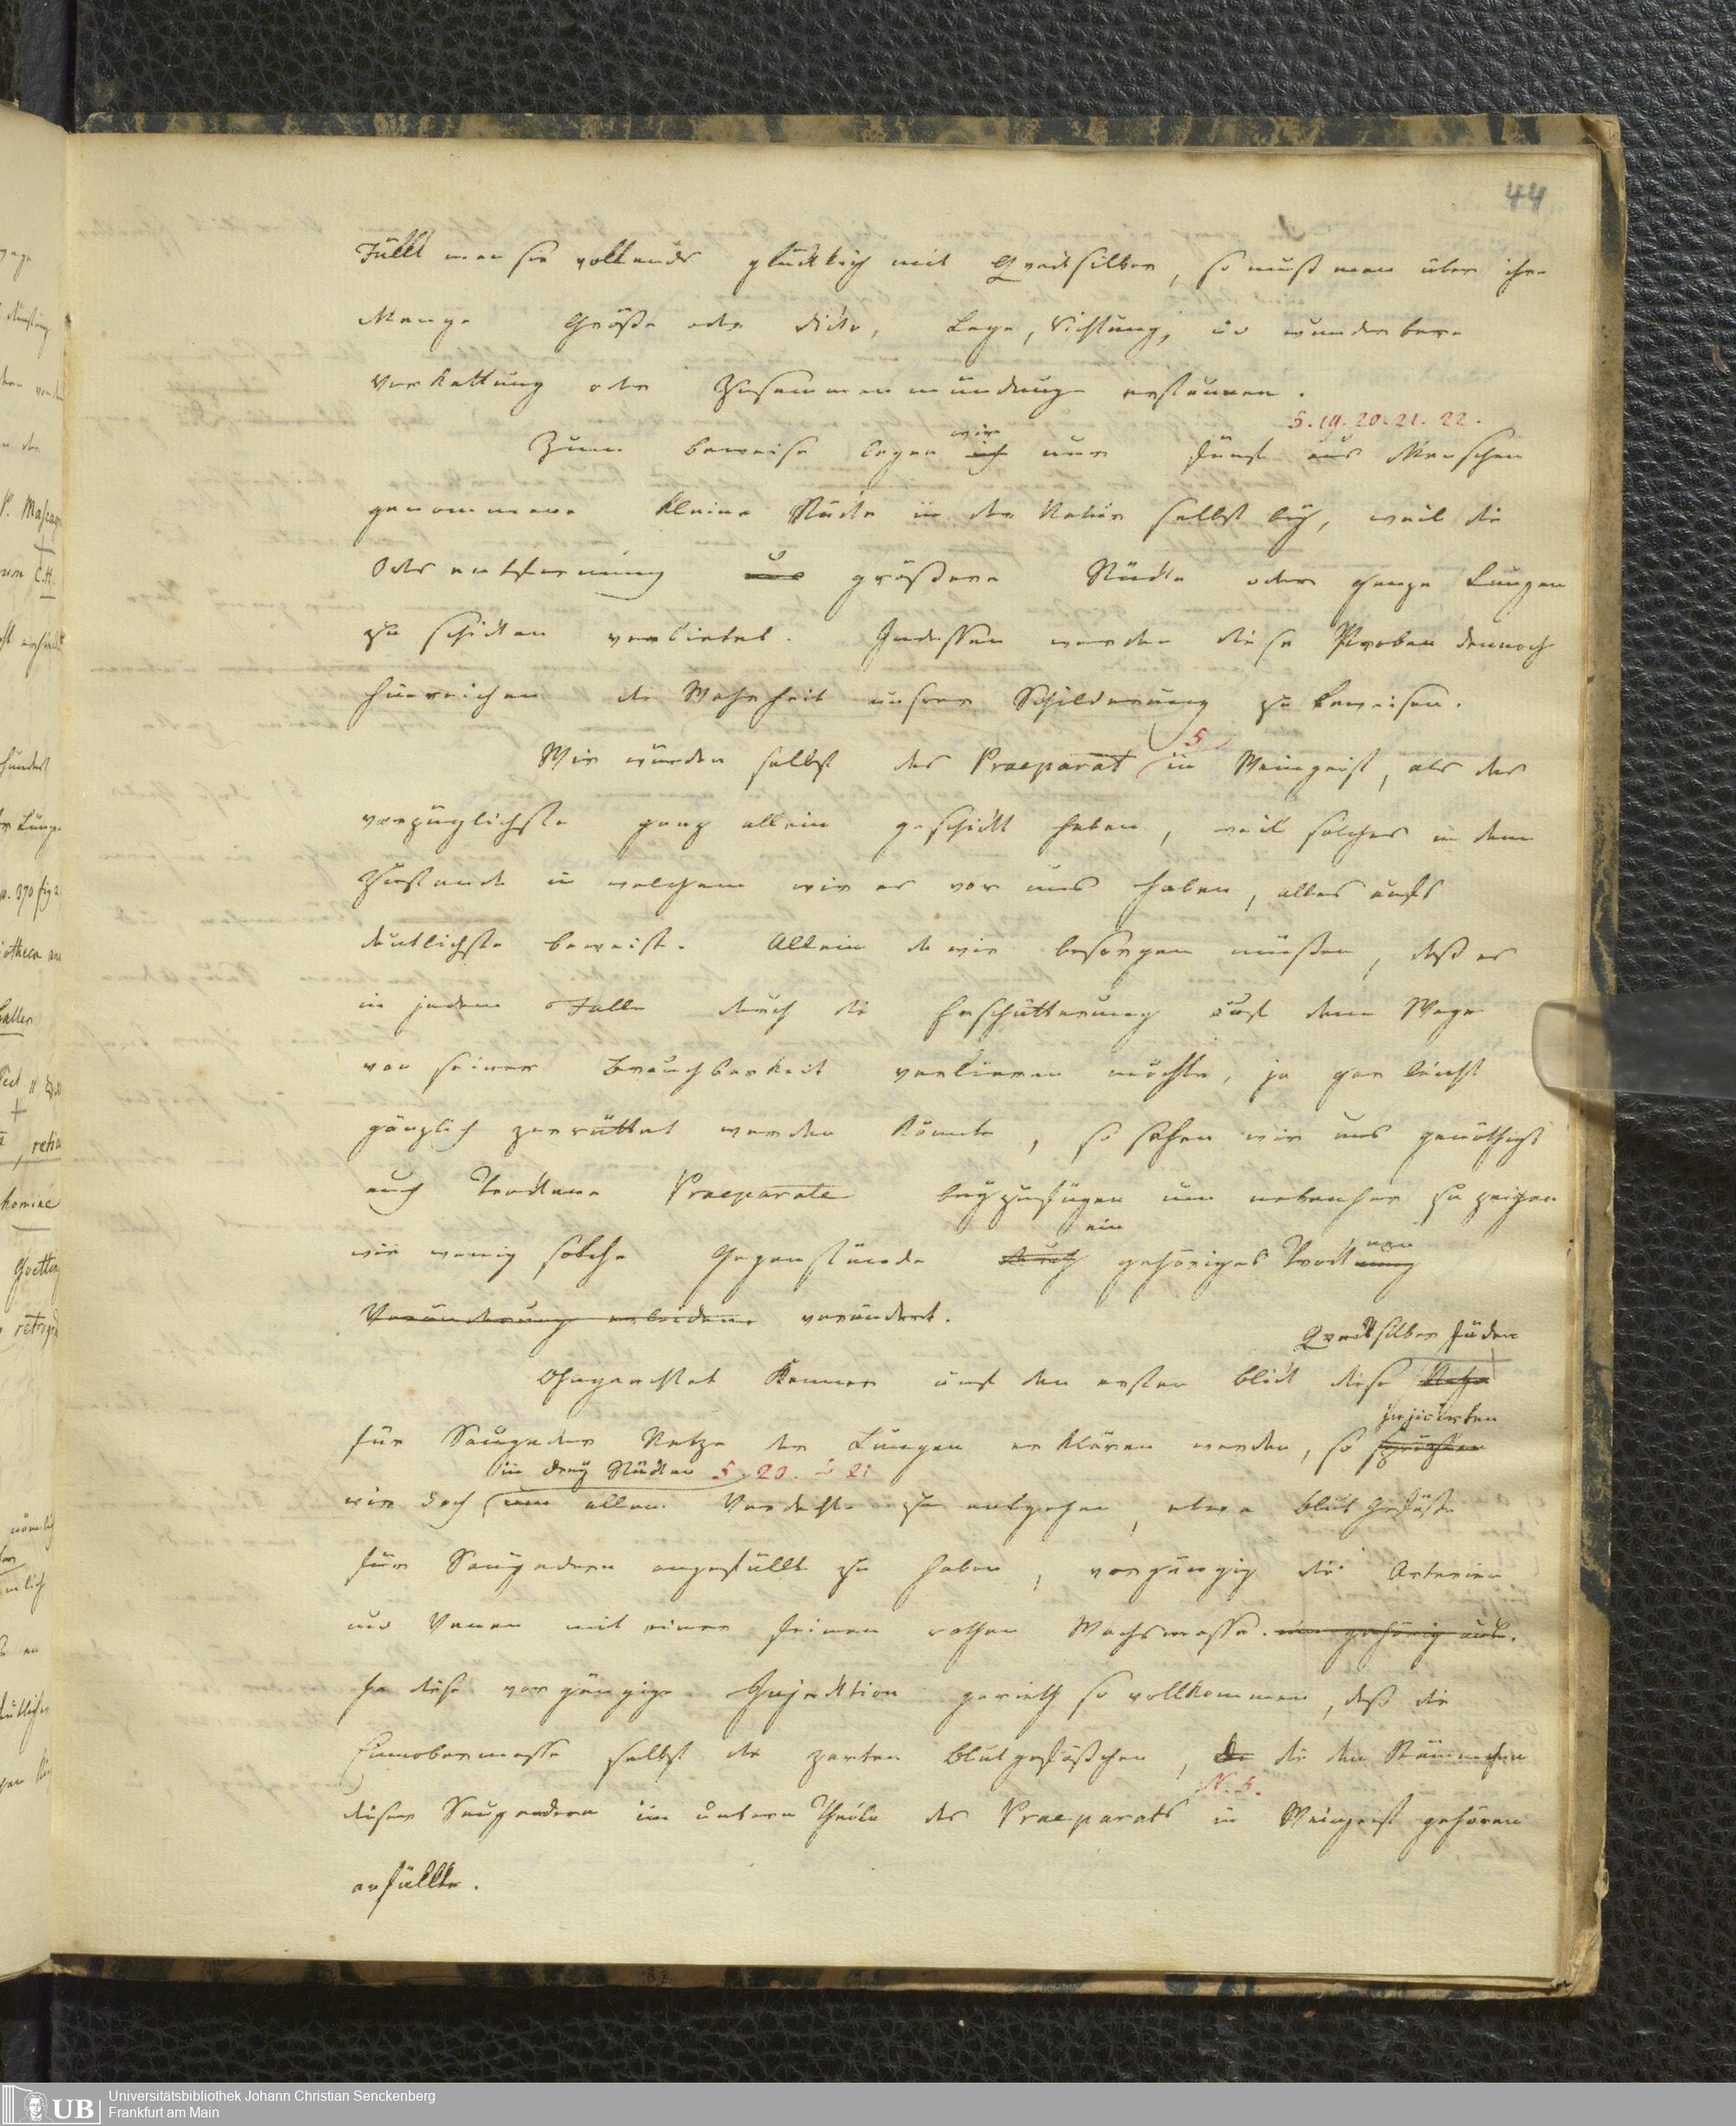 44
Füllt man sie vollends glücklich mit Quecksilber, so muß man über ihre
Menge Größe oder Dicke, Lage, Richtung, u wunderbare
Verkettung oder Zusammenmündung erstaunen.
5. 19. 20. 21. 22.
wir
Zum Beweise legen ich nur fünf aus Menschen
genommene kleine Stücke in der Natur selbst bey, weil die
Ortsentfernung uns größere Stücke oder ganze Lungen
zu schicken verbietet. Indessen werden diese Proben dennoch
hinreichen die Wahrheit unsrer Schilderung zu beweisen.
5
Wir würden selbst das Praeparat in Weingeist, als das
vorzüglichste ganz allein geschickt haben, weil solches in dem
Zustande in welchem wir es vor uns haben, alles aufs
deutlichste beweist. Allein da wir besorgen müßen, daß es
in jedem Falle durch die Erschütterung auf dem Wege
von seiner Brauchbarkeit verlieren möchte, ja gar leicht
gänzlich zerrüttet werden könnte, so sehen wir uns genöthigt
auch trockene Praeparate beyzufügen um nebenher zu zeigen
ein
nen
wie wenig solche Gegenstände durch gehöriges Trocknung
Veränderung erleiden verändert.
Quecksilber Fäden
Ohngeachtet Kenner auf den ersten Blick diese Netze
injicirten
für Saugader Netze der Lungen erklären werden, so spritzten
in drey Stücken 5, 20. u 21
wir doch um allem Verdachte zu entgehen, etwa Blut Gefäße
für Saugadern angefüllt zu haben, vorgängig die Arterien
und Venen mit einer feinen rothen Wachsmasse. gehörig aus.
Ja diese vorgängige Injecktion gerieth so vollkommen, daß die
Zinnobermasse selbst die zarten Blutgefäßchen, die die den Stämmchen
N. 5.
dieser Saugadern im untern Theile des Praeparats in Weingeist gehören
erfüllte.
Universitätsbibliothek Johann Christian Senckenberg
Frankfurt am Main
UB